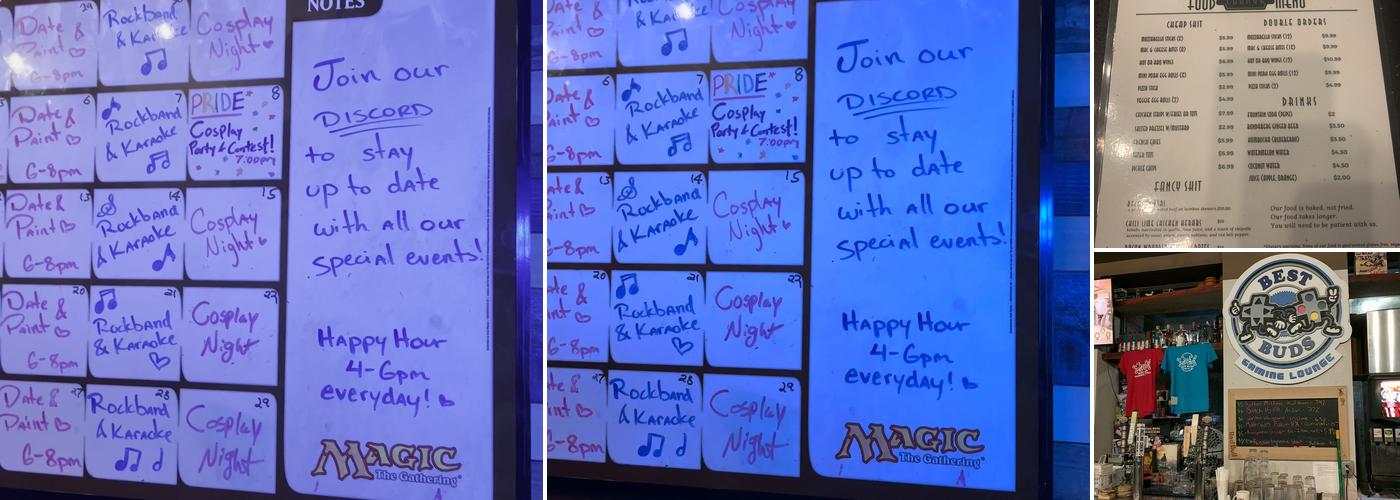 NOTES
29
Date &
Paint
6-8pm
Rockband
& Karaoke
Cosplay
Night
6
Date &
Paint
6-8pm
7
Rockband
& Karaoke
8
PRIDE
Cosplay
Party & Contest!
7:00pm
13
Date &
Paint
6-8pm
14
Rockband
& Karaoke
15
Cosplay
Night
20
Date &
Paint
6-8pm
21
Rockband
& Karaoke
22
Cosplay
Night
27
Date &
Paint
6-8pm
28
Rockband
& Karaoke
29
Cosplay
Night
Join our
DISCORD
to stay
up to date
with all our
special events!
Happy Hour
4-6pm
everyday!
MAGIC
The Gathering
& Karaoke
Cosplay
Night
6
Date &
Paint
6-8pm
7
Rockband
& Karaoke
8
PRIDE
Cosplay
Party & Contest!
7:00pm
13
Date &
Paint
6-8pm
14
Rockband
& Karaoke
15
Cosplay
Night
20
Date &
Paint
6-8pm
21
Rockband
& Karaoke
22
Cosplay
Night
27
Date &
Paint
6-8pm
28
Rockband
& Karaoke
29
Cosplay
Night
Join our
DISCORD
to stay
up to date
with all our
special events!
Happy Hour
4-6pm
everyday!
MAGIC
The Gathering
FOOD MENU
CHEAP SHIT
MOZZARELLA STICKS (2) $5.99
MAC & CHEESE BITES (8) $5.99
HOT OR BBQ WINGS (6) $6.99
MINI PORK EGG ROLLS (6) $5.99
PIZZA STICK $2.99
VEGGIE EGG ROLLS (2) $4.99
CHICKEN STRIPS W/FRIES OR TOTS $7.99
SALTED PRETZEL W/MUSTARD $2.99
$5.99
TATER TOTS $5.99
PICKLE CHIPS $6.99
DOUBLE ORDERS
MOZZARELLA STICKS (4) $9.99
MAC & CHEESE BITES (16) $9.99
HOT OR BBQ WINGS (12) $10.99
MINI PORK EGG ROLLS (12) $9.99
PIZZA STICKS (2) $4.99
DRINKS
FOUNTAIN SODA (PEPSI) $2
BUNDABERG GINGER BEER $3.50
KOMBUCHA $5.50
WATERMELON WATER $4.50
COCONUT WATER $4.50
JUICE (APPLE, ORANGE) $2.00
FANCY SHIT
CHILI LIME CHICKEN KEBABS
Our food is baked, not fried.
Our food takes longer.
You will need to be patient with us.
BEST
BUDS
GAMING LOUNGE